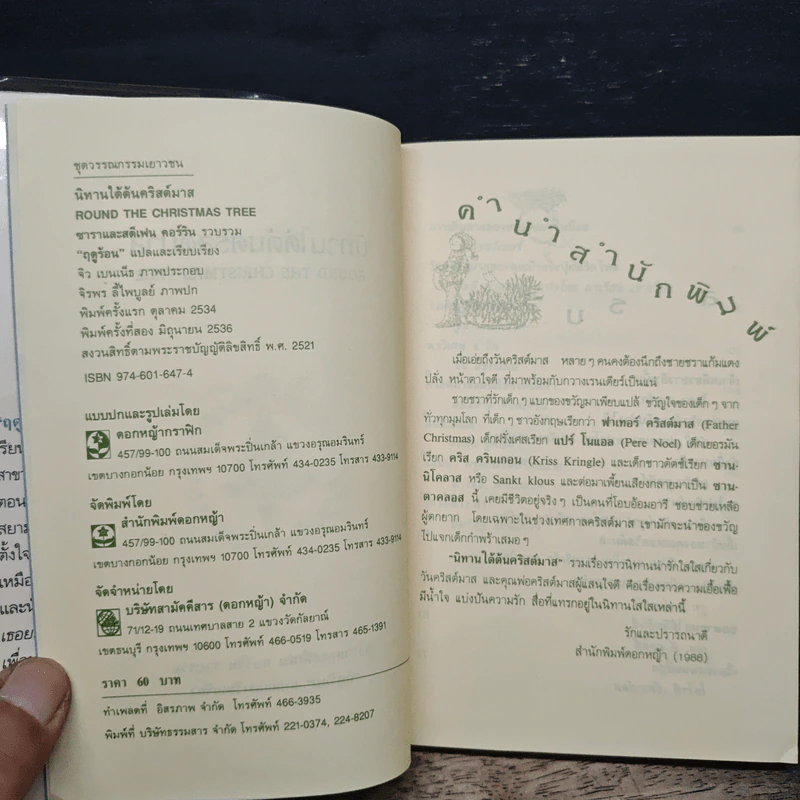 ชุดวรรณกรรมเยาวชน
นิทานใต้ต้นคริสต์มาส
ROUND THE CHRISTMAS TREE
ซาราและสตีเฟน คอร์ริน รวบรวม
"ฤดูร้อน" แปลและเรียบเรียง
จิว เบนเน็ธ ภาพประกอบ
จิรพร ลี้ไพบูลย์ ภาพปก
พิมพ์ครั้งแรก ตุลาคม 2534
พิมพ์ครั้งที่สอง มิถุนายน 2536
สงวนสิทธิ์ตามพระราชบัญญัติลิขสิทธิ์ พ.ศ. 2521
ISBN 974-601-647-4
แบบปกและรูปเล่มโดย
ดอกหญ้ากราฟิก
457/99-100 ถนนสมเด็จพระปิ่นเกล้า แขวงอรุณอมรินทร์
เขตบางกอกน้อย กรุงเทพฯ 10700 โทรศัพท์ 434-0235 โทรสาร 433-9114
จัดพิมพ์โดย
สำนักพิมพ์ดอกหญ้า
457/99-100 ถนนสมเด็จพระปิ่นเกล้า แขวงอรุณอมรินทร์
เขตบางกอกน้อย กรุงเทพฯ 10700 โทรศัพท์ 434-0235 โทรสาร 433-9114
จัดจำหน่ายโดย
บริษัทสามัคคีสาร (ดอกหญ้า) จำกัด
71/12-19 ถนนเทศบาลสาย 2 แขวงวัดกัลยาณ์
เขตธนบุรี กรุงเทพฯ 10600 โทรศัพท์ 466-0519 โทรสาร 465-1391
ราคา 60 บาท
ทำเพลตที่ อิสรภาพ จำกัด โทรศัพท์ 466-3935
พิมพ์ที่ บริษัทธรรมสาร จำกัด โทรศัพท์ 221-0374, 224-8207
คำนำสำนักพิมพ์
เมื่อเอ่ยถึงวันคริสต์มาส หลายๆ คนคงต้องนึกถึงชายชราแก้มแดง
ปลั่ง หน้าตาใจดี ที่มาพร้อมกับกวางเรนเดียร์เป็นแน่
ชายชราที่รักเด็กๆ แบกของขวัญมาเพียบแปล้ ขวัญใจของเด็กๆ จาก
ทั่วทุกมุมโลก ที่เด็กๆ ชาวอังกฤษเรียกว่า ฟาเทอร์ คริสต์มาส (Father
Christmas) เด็กฝรั่งเศสเรียก แปร์ โนแอล (Pere Noel) เด็กเยอรมัน
เรียก คริส ครินเกอน (Kriss Kringle) และเด็กชาวดัตช์เรียก ซาน-
นิโคลาส หรือ Sankt klous และต่อมาเพี้ยนเสียงกลายมาเป็น ซาน-
ตาคลอส นี้ เคยมีชีวิตอยู่จริงๆ เป็นคนที่โอบอ้อมอารี ชอบช่วยเหลือ
ผู้ตกยาก โดยเฉพาะในช่วงเทศกาลคริสต์มาส เขามักจะนำของขวัญ
ไปแจกเด็กกำพร้าเสมอๆ
"นิทานใต้ต้นคริสต์มาส" รวมเรื่องราวนิทานน่ารักใสใสเกี่ยวกับ
วันคริสต์มาส และคุณพ่อคริสต์มาสผู้แสนใจดี คือเรื่องราวความเอื้อเฟื้อ
มีน้ำใจ แบ่งปันความรัก สื่อที่แทรกอยู่ในนิทานใสใสเหล่านี้
รักและปรารถนาดี
สำนักพิมพ์ดอกหญ้า (1988)